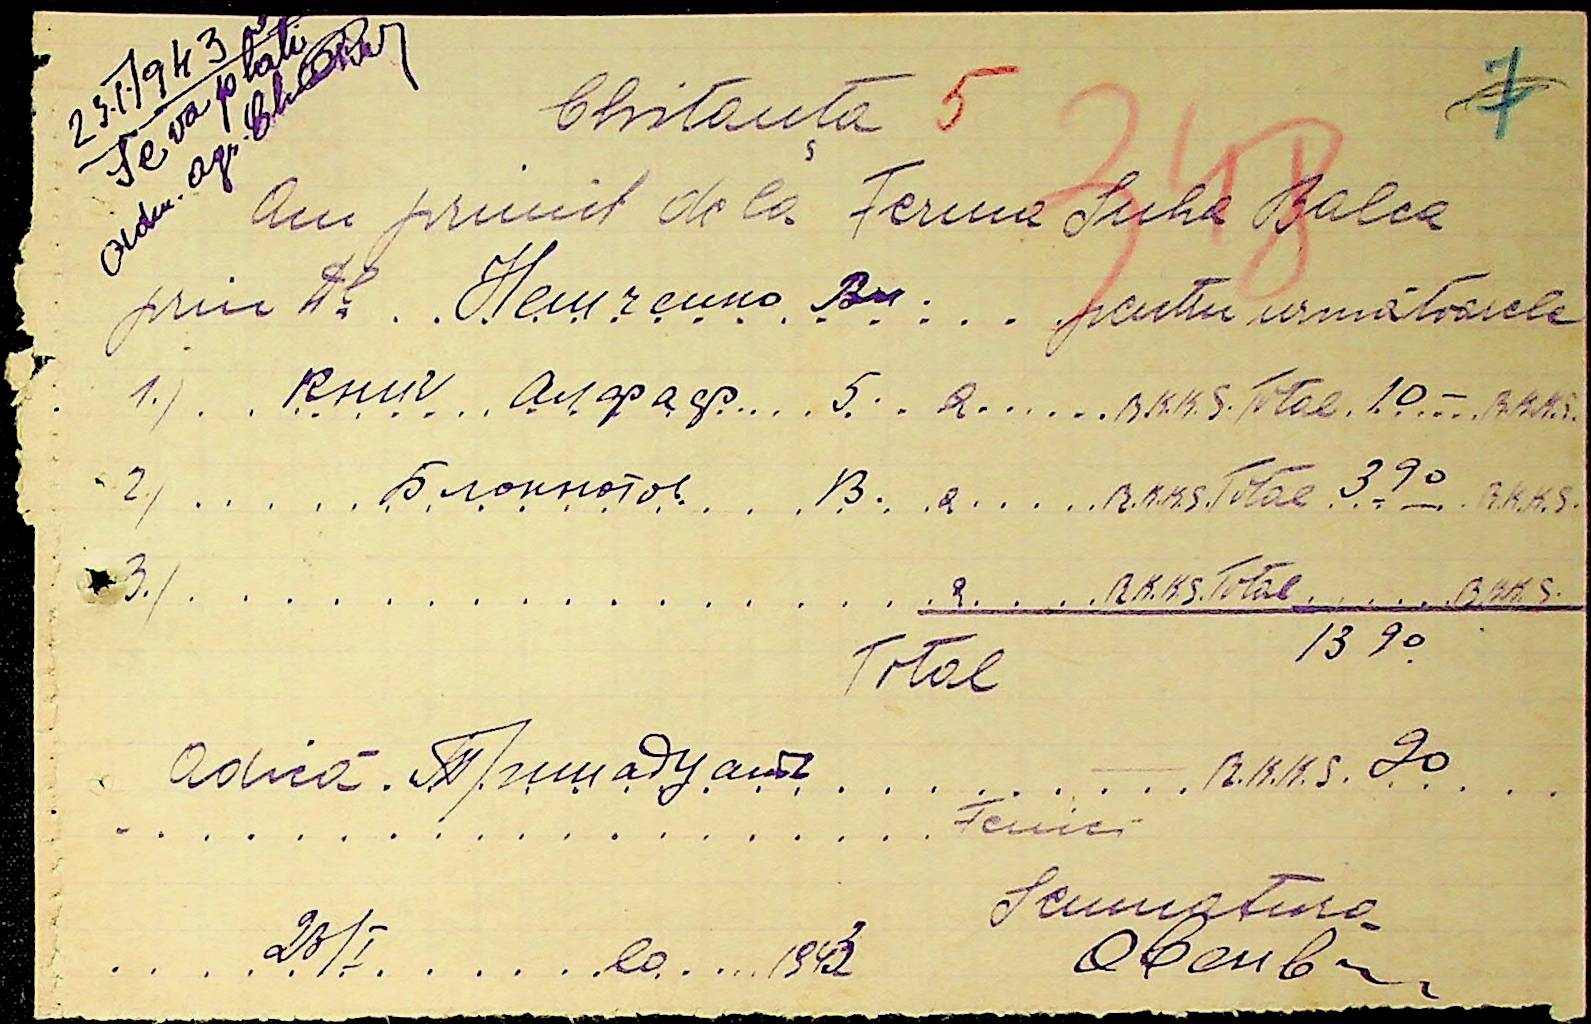 23.I.1943
Se va plati
Chitanța 5 348 7
Am primit de la Ferma Suha Balca
prin Dl. Немченко Вн. pentru următoarele
1.) Книг Алфав. 5. a R.K.K.S. Total 10 - R.K.K.S.
2.) Блокнотов 13. a R.K.K.S. Total 3.90 R.K.K.S.
3.) a R.K.K.S. Total R.K.K.S.
Total 13 90
Adică Тринадцать R.K.K.S. 90
Fenici
Semnatura
23/I 1943